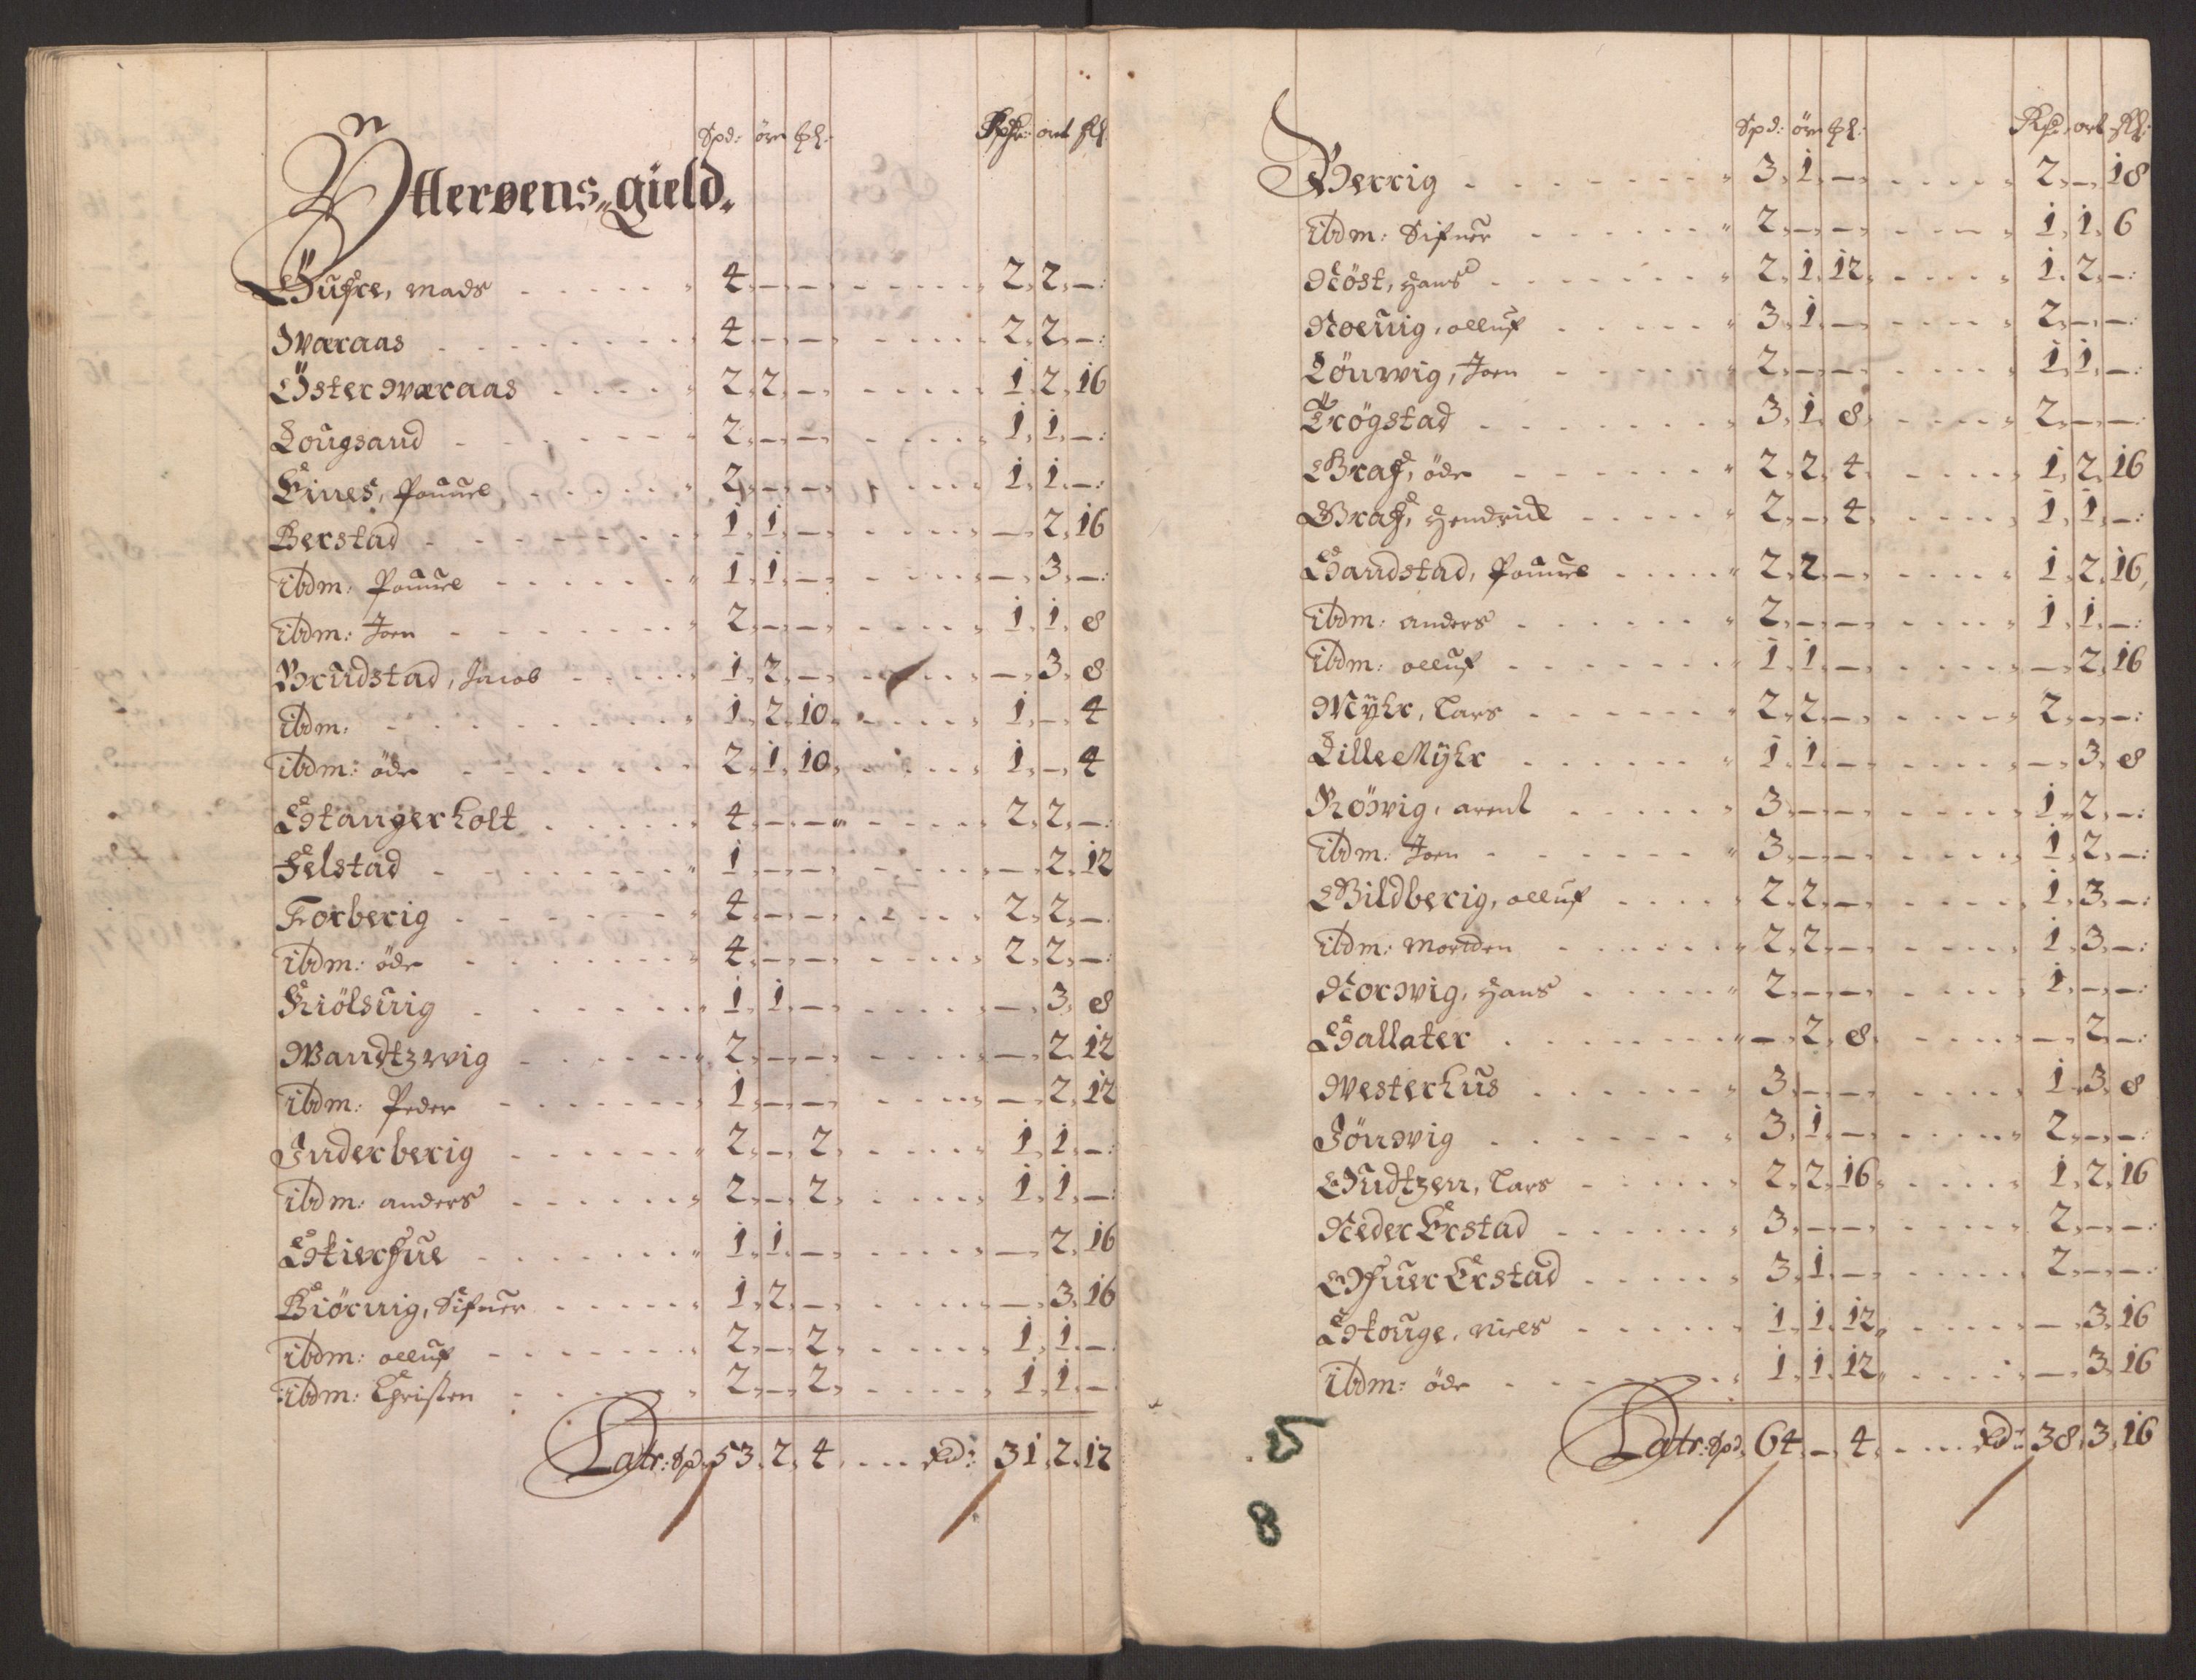 Spd: ör pl: Rdr: ort sk
Ytterøens gield.
Guhre, mads 4 - - 2 2 -
Waraas 4 - - 2 2 -
Öster Waraas 2 2 - 1 2 16
Lougsand 2 - - 1 1 -
Eines, Pouuel 2 - - 1 1 -
Berstad 1 1 - - 2 16
ibdm: Pouuel 1 1 - - 3 -
ibdm: Joen 2 - - 1 1 8
Brudstad, Jacob 1 2 - - 3 8
ibdm: 1 2 10 1 - 4
ibdm: öde 2 1 10 1 - 4
Stangerholt 4 - - 2 2 -
Felstad 1 - - - 2 12
Forberig 4 - - 2 2 -
ibdm: öde 4 - - 2 2 -
Kiölsuig 1 1 - - 3 8
Wandtzwig 2 - - - 2 12
ibdm: Peder 1 - - - 2 12
Inderberig 2 - 2 1 1 -
ibdm: anders 2 - 2 1 1 -
Skierfue 1 1 - - 2 16
Biöruig, Sifuer 1 2 - - 3 16
ibdm: olluf 2 - 2 1 1 -
ibdm: Christen 2 - 2 1 1 -
Latr: Spd. 53 2 4 Rd: 31 2 12
Spd: ör pl: Rdr: ort sk:
Berrig 3 1 - 2 - 18
ibdm: Sifuer 2 - - 1 1 6
Röst, Hans 2 1 12 1 2 -
Noeuig, olluf 3 1 - 2 - -
Löuwig, Joen 2 - - 1 1 -
Trögstad 3 1 8 2 - -
Braf, öde 2 2 4 1 2 16
Braf, Hendrick 2 - 4 1 1 -
Sandstad, Pouuel 2 2 - 1 2 16
ibdm: anders 2 - - 1 1 -
ibdm: olluf 1 1 - - 2 16
Myhr, Lars 2 2 - 2 - -
Lille Myhr 1 1 - - 3 8
Röswig, arent 3 - - 1 2 -
ibdm: Joen 3 - - 1 2 -
Bildberig, olluf 2 2 - 1 3 -
ibdm: morten 2 2 - 1 3 -
Norwig, Hans 2 - - 1 - -
Hallater - 2 8 - 2 -
Westerhus 3 - - 1 3 8
Jönwig 3 1 - 2 - -
Gudtzen, Lars 2 2 16 1 2 16
Neder Erstad 3 - - 2 - -
Ofuer Erstad 3 1 - 2 - -
Skouge, niels 1 1 12 - 3 16
ibdm: öde 1 1 12 - 3 16
Latr: Spd. 64 - 4 Rd: 38 3 16
8